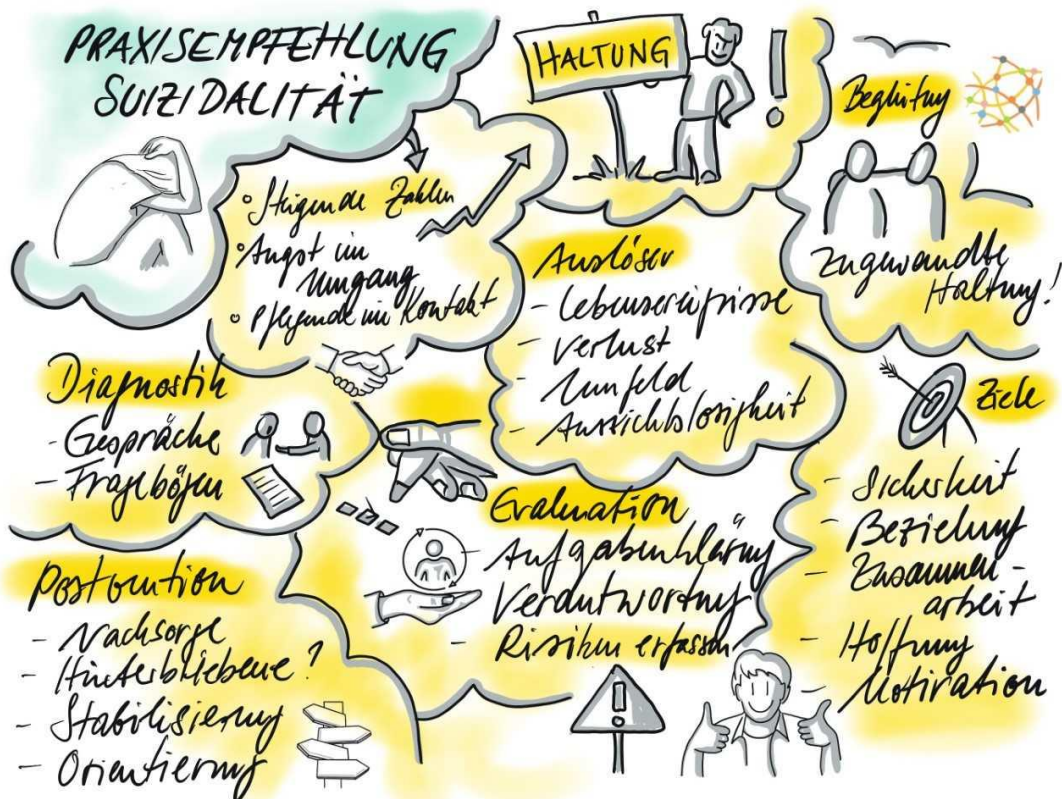 PRAXISEMPFEHLUNG
SUIZIDALITÄT
HALTUNG
!
Begleitung
Zugewandte
Haltung!
• Steigende Zahlen
• Angst im
Umgang
• Pflegende im Kontakt
Auslöser
- Lebensereignisse
- Verlust
- Umfeld
- Aussichtslosigkeit
Diagnostik
- Gespräche
- Fragebögen
Ziele
- Sicherheit
- Beziehung
- Zusammen-
arbeit
- Hoffnung
- Motivation
Evaluation
- Aufgabenklärung
- Verantwortung
- Risiken erfassen
!
Postvention
- Nachsorge
- Hinterbliebene?
- Stabilisierung
- Orientierung